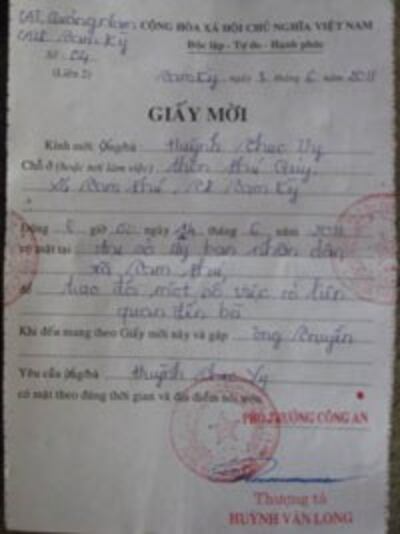 CAT. Quảng Nam CỘNG HÒA XÃ HỘI CHỦ NGHĨA VIỆT NAM
CATP. Tam Kỳ Độc lập - Tự do - Hạnh phúc
Số: 04
(Liên 2) Tam Kỳ, ngày 3 tháng 6 năm 2011
GIẤY MỜI
Kính mời ông/bà Huỳnh Thục Vy
Chỗ ở (hoặc nơi làm việc) thôn Phú Quý,
xã Tam Phú, TP Tam Kỳ
Đúng 8 giờ 00 ngày 14 tháng 6 năm 2011
có mặt tại trụ sở Ủy ban nhân dân
xã Tam Phú,
để trao đổi một số việc có liên
quan đến bà
Khi đến mang theo Giấy mời này và gặp ông
Yêu cầu ông/bà Huỳnh Thục Vy
có mặt theo đúng thời gian và địa điểm nói trên.
PHÓ TRƯỞNG CÔNG AN
Thượng tá
HUỲNH VĂN LONG